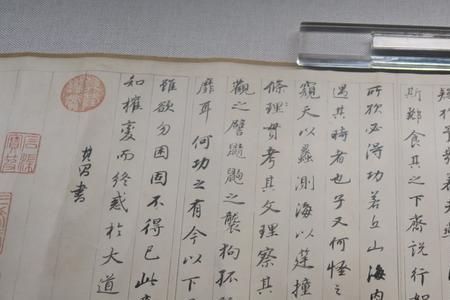 斯酈食其之下齊說行如
所欲必得功若丘山海內
遇其時者也子又何怪之
窺天以蠡測海以莛撞
條理貫考其文理察其
觀之譬鼱鼩之襲狗孤
靡耳何功之有今以下
雖欲勿困固不得已此
知權變而終惑於大道
其昌書